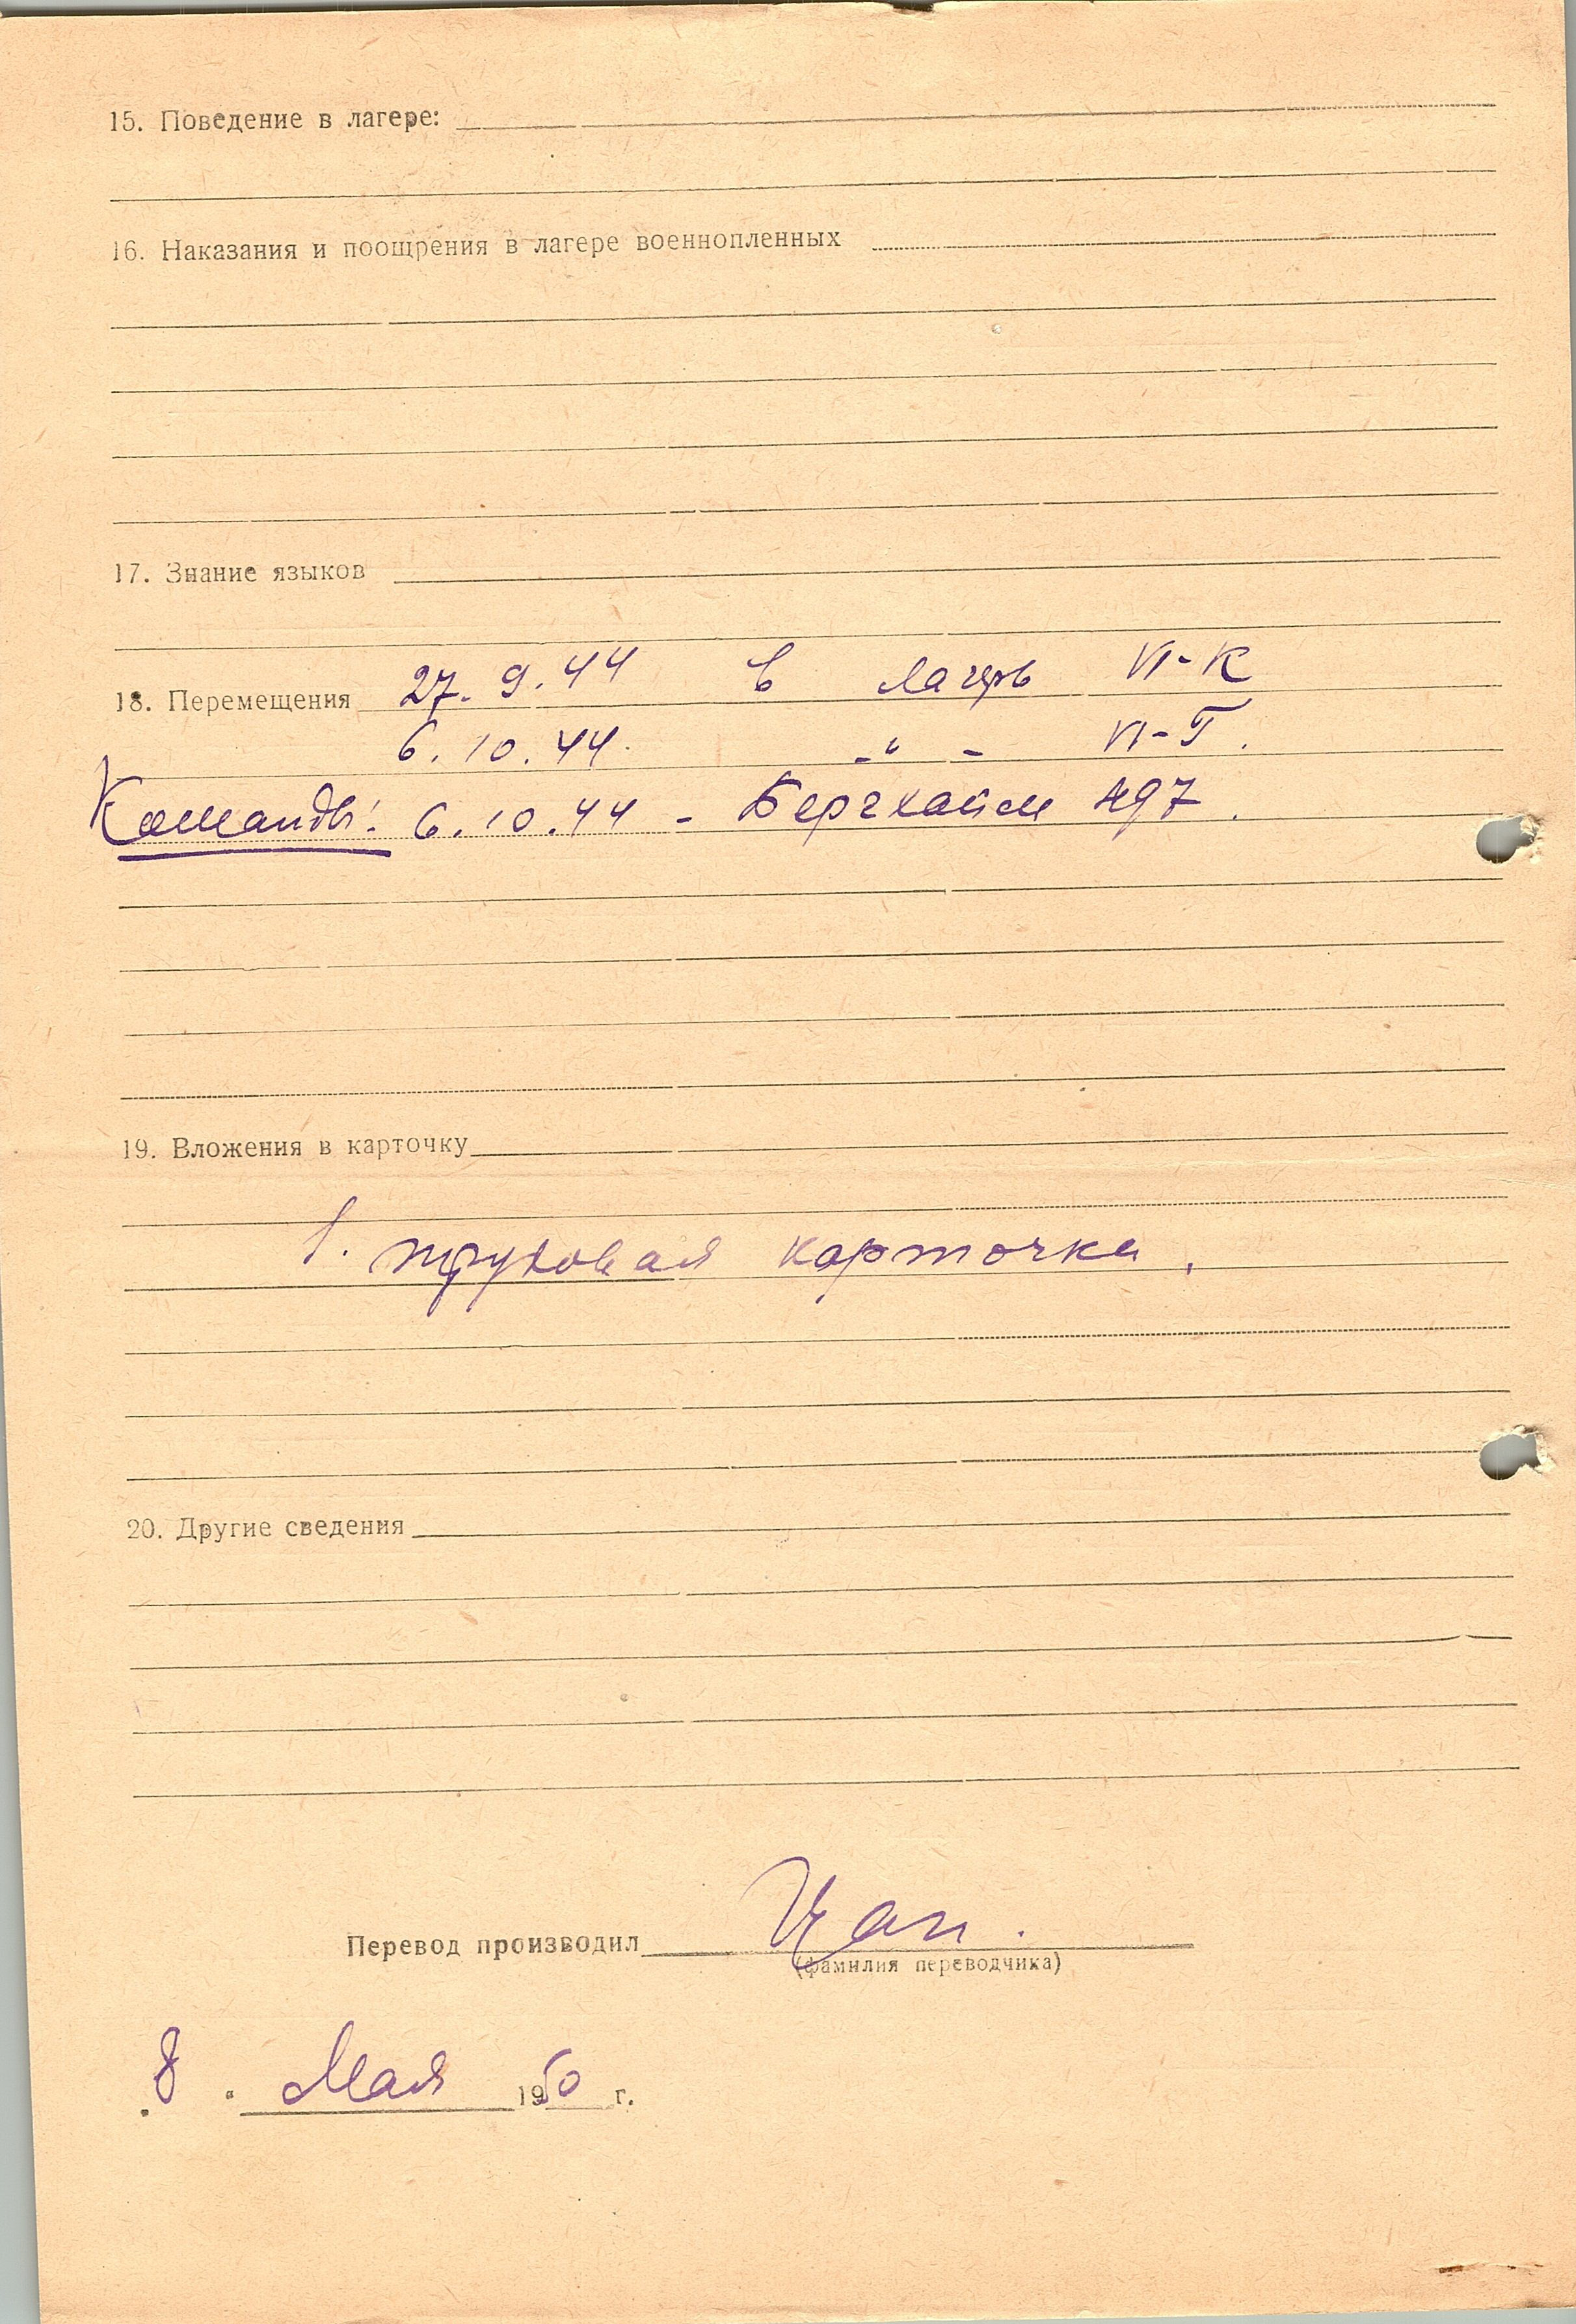 15. Поведение в лагере:
16. Наказания и поощрения в лагере военнопленных
17. Знание языков
18. Перемещения 27. 9. 44 в лагерь VI-К
6. 10. 44. -"- VI-Г.
Команды: 6. 10. 44 - Бергхайм 497.
19. Вложения в карточку
1. трудовая карточка.
20. Другие сведения
Перевод производил Цап.
(фамилия переводчика)
"8" Мая 1950 г.